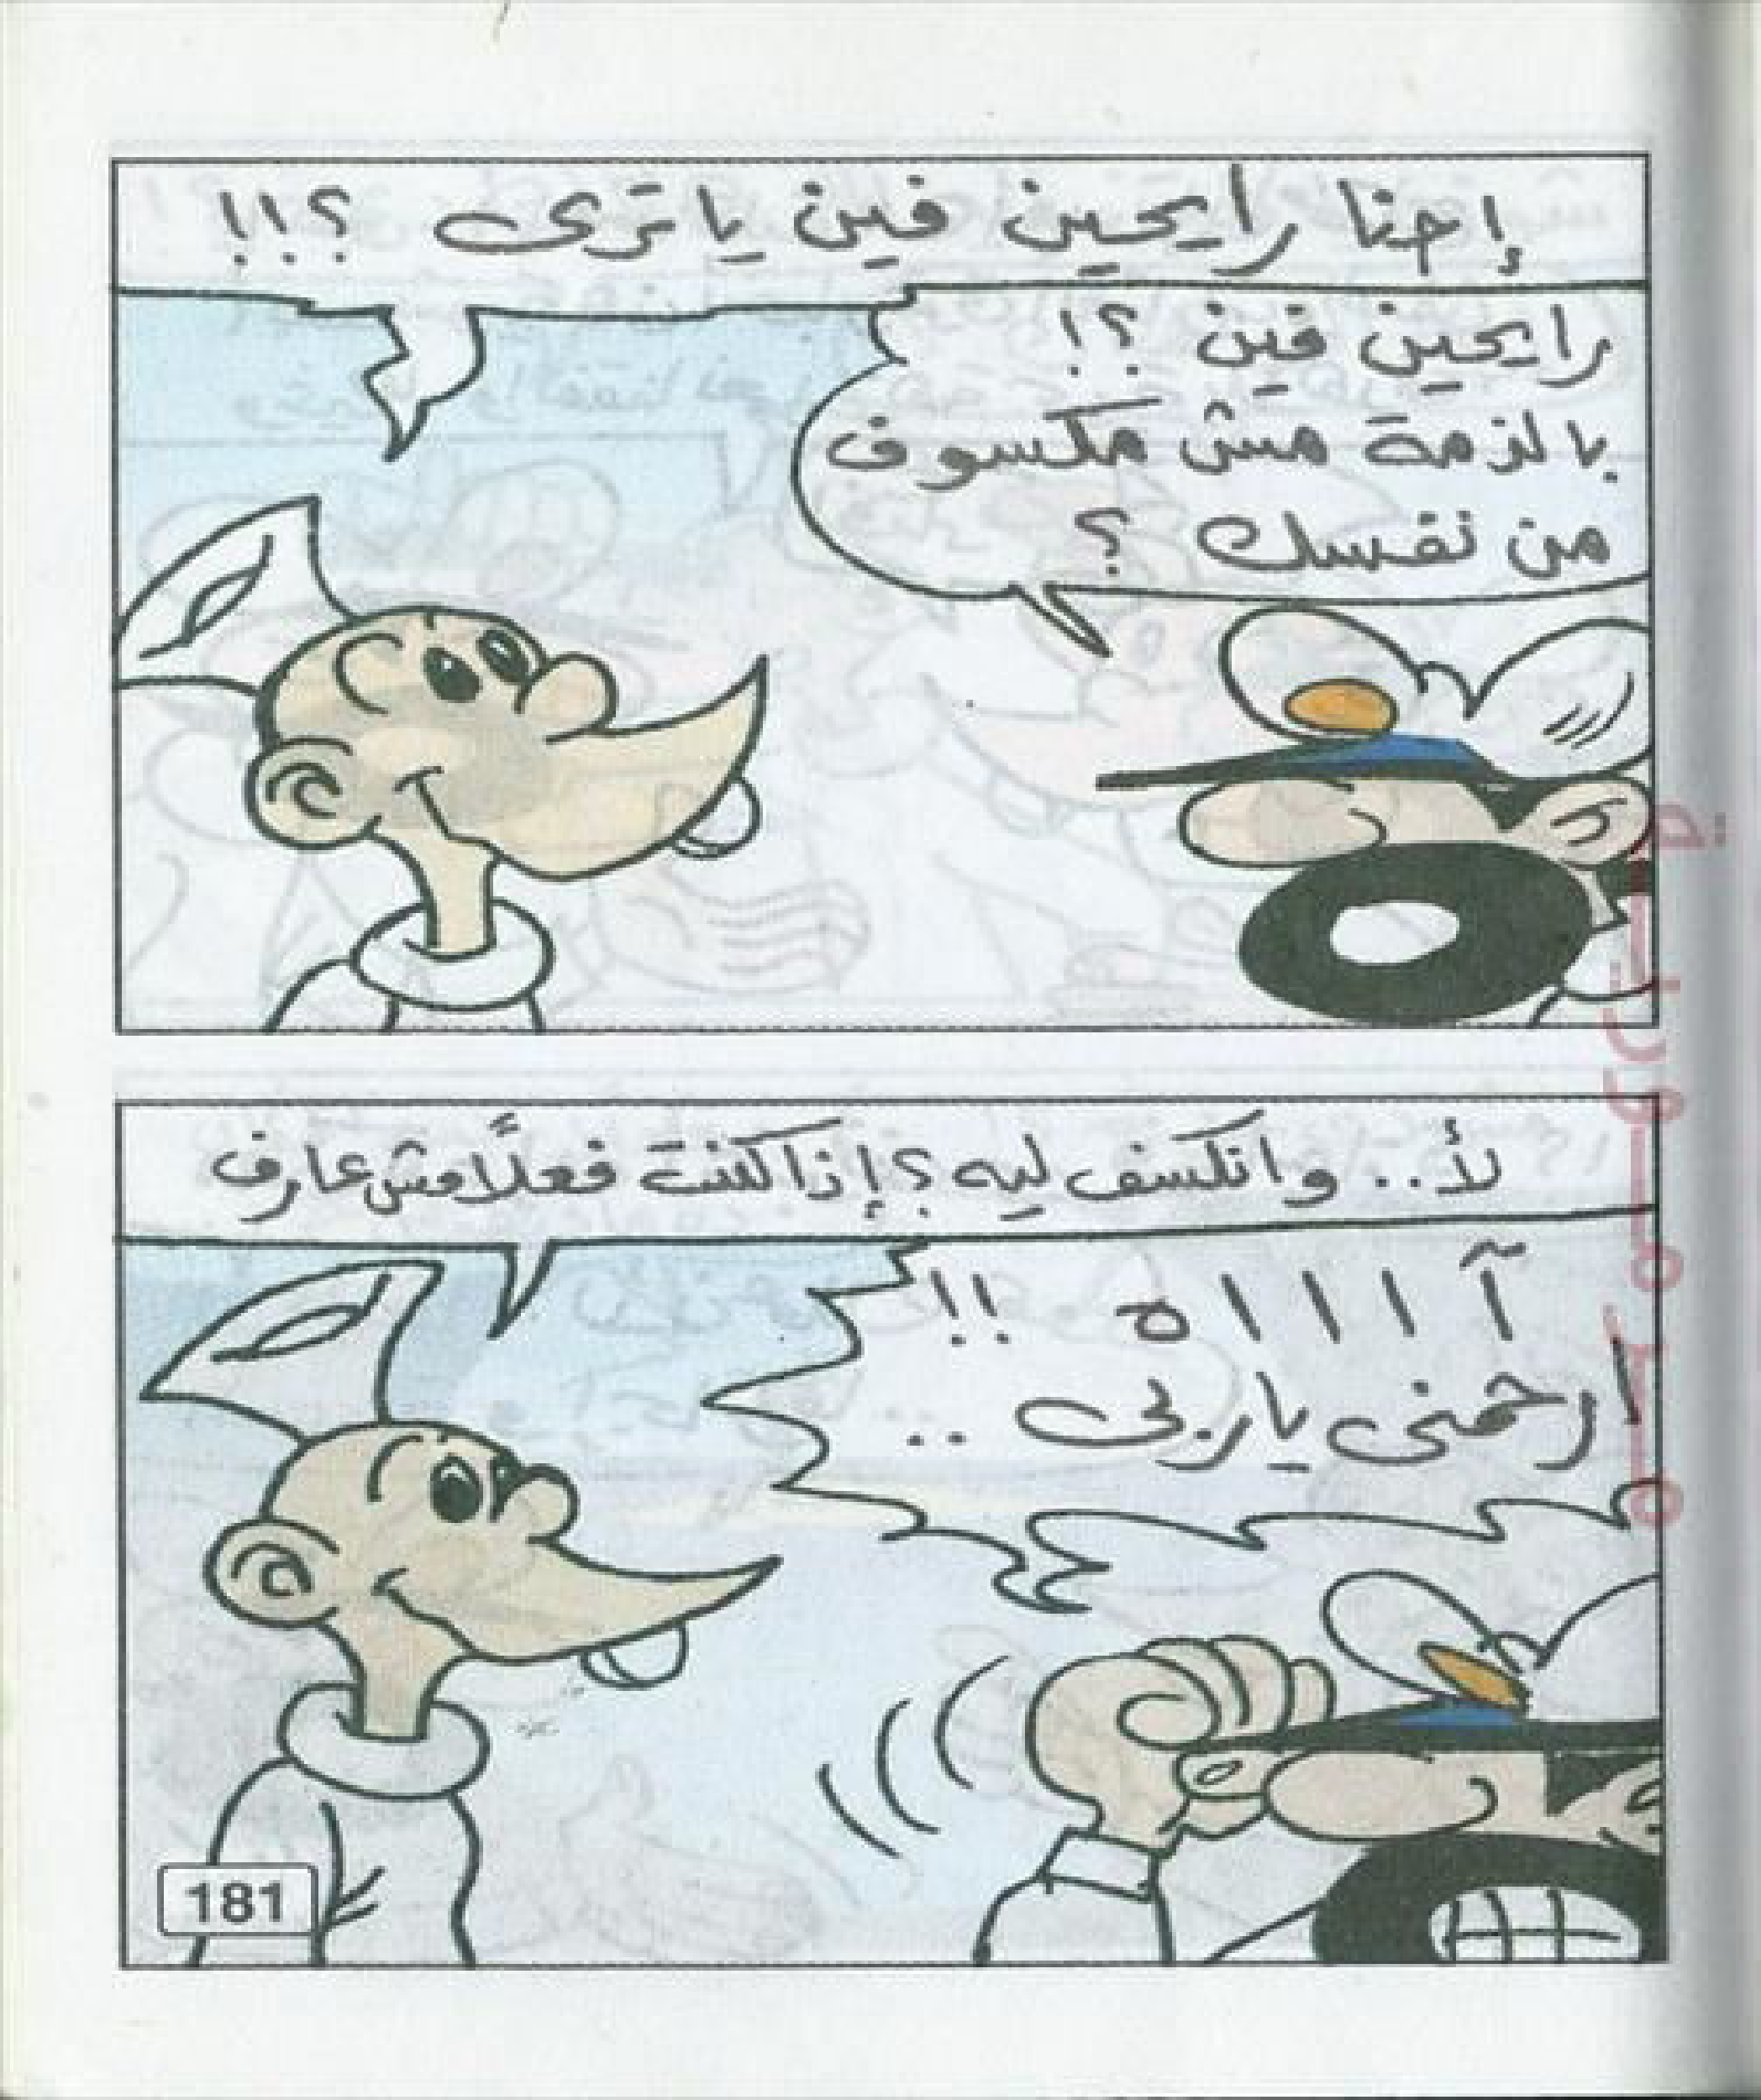 إحنا رايحين فين يا ترى ؟!!
رايحين فين ؟!
بالذمة مش مكسوف
من نفسك ؟
لأ.. وانكسف ليه ؟ إذا كنت فعلاً مش عارف
آ ا ا ا اه !!
ارحمنى يا ربى ..
181